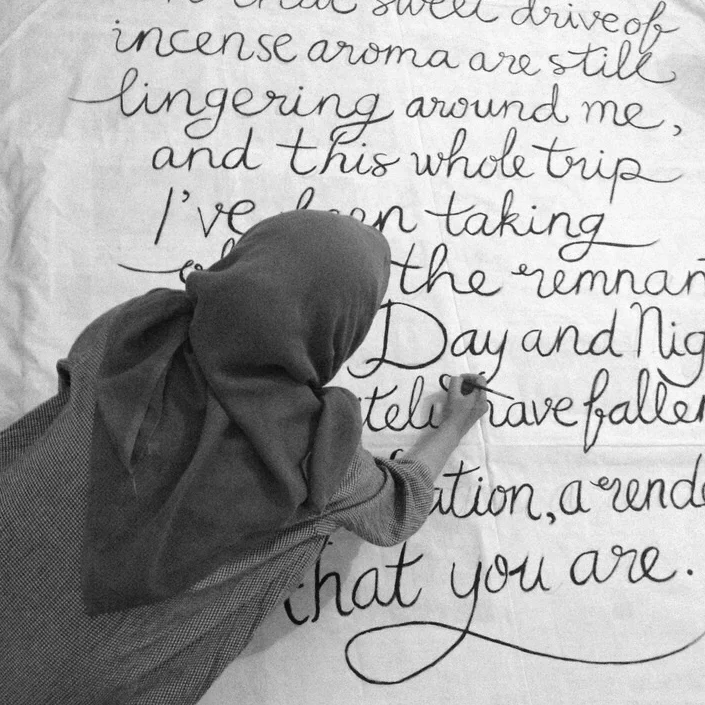 that sweet drive of
incense aroma are still
lingering around me,
and this whole trip
I've been taking
the remnan
Day and Nig
have fallen
ation, a rende
that you are.